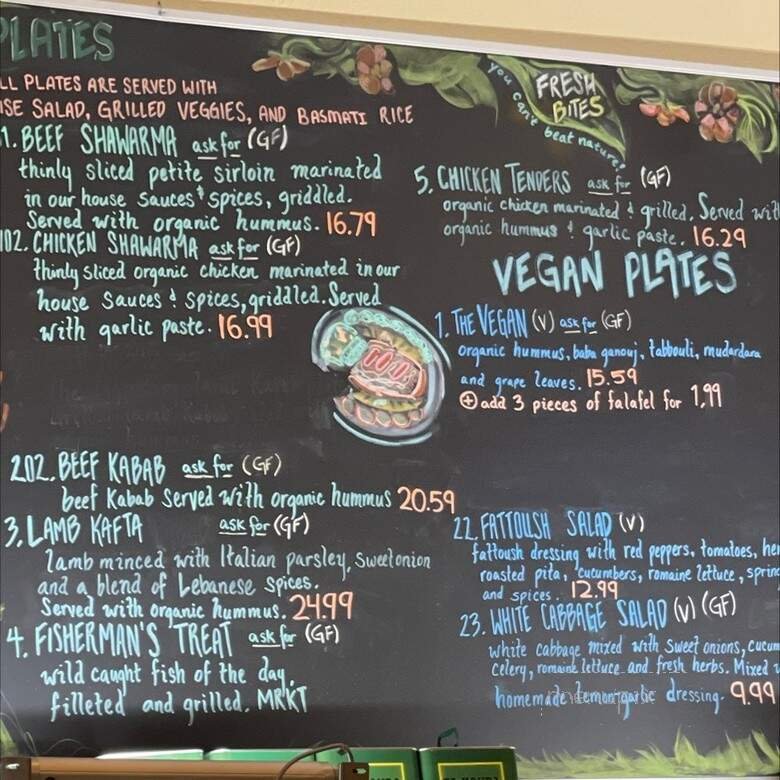 PLATES
LL PLATES ARE SERVED WITH
SE SALAD, GRILLED VEGGIES, AND BASMATI RICE
1. BEEF SHAWARMA ask for (GF)
thinly sliced petite sirloin marinated
in our house sauces & spices, griddled.
Served with organic hummus. 16.79
102. CHICKEN SHAWARMA ask for (GF)
thinly sliced organic chicken marinated in our
house sauces & spices, griddled. Served
with garlic paste. 16.99
202. BEEF KABAB ask for (GF)
beef Kabab Served with organic hummus 20.59
3. LAMB KAFTA ask for (GF)
lamb minced with Italian parsley, Sweet onion
and a blend of Lebanese Spices.
Served with organic hummus. 24.99
4. FISHERMAN'S TREAT ask for (GF)
wild caught fish of the day,
filleted and grilled. MRKT
FRESH
BITES
you can't beat nature!
5. CHICKEN TENDERS ask for (GF)
organic chicken marinated & grilled. Served with
organic hummus & garlic paste. 16.29
VEGAN PLATES
1. THE VEGAN (V) ask for (GF)
organic hummus, baba ganouj, tabbouli, mudardara
and grape leaves. 15.59
+ add 3 pieces of falafel for 1.99
100%
22. FATTOUSH SALAD (V)
fattoush dressing with red peppers, tomatoes, he
roasted pita, cucumbers, romaine lettuce, sprin
and spices. 12.99
23. WHITE CABBAGE SALAD (V) (GF)
white cabbage mixed with Sweet onions, cucum
Celery, romaine lettuce and fresh herbs. Mixed
homemade lemon garlic dressing. 9.99